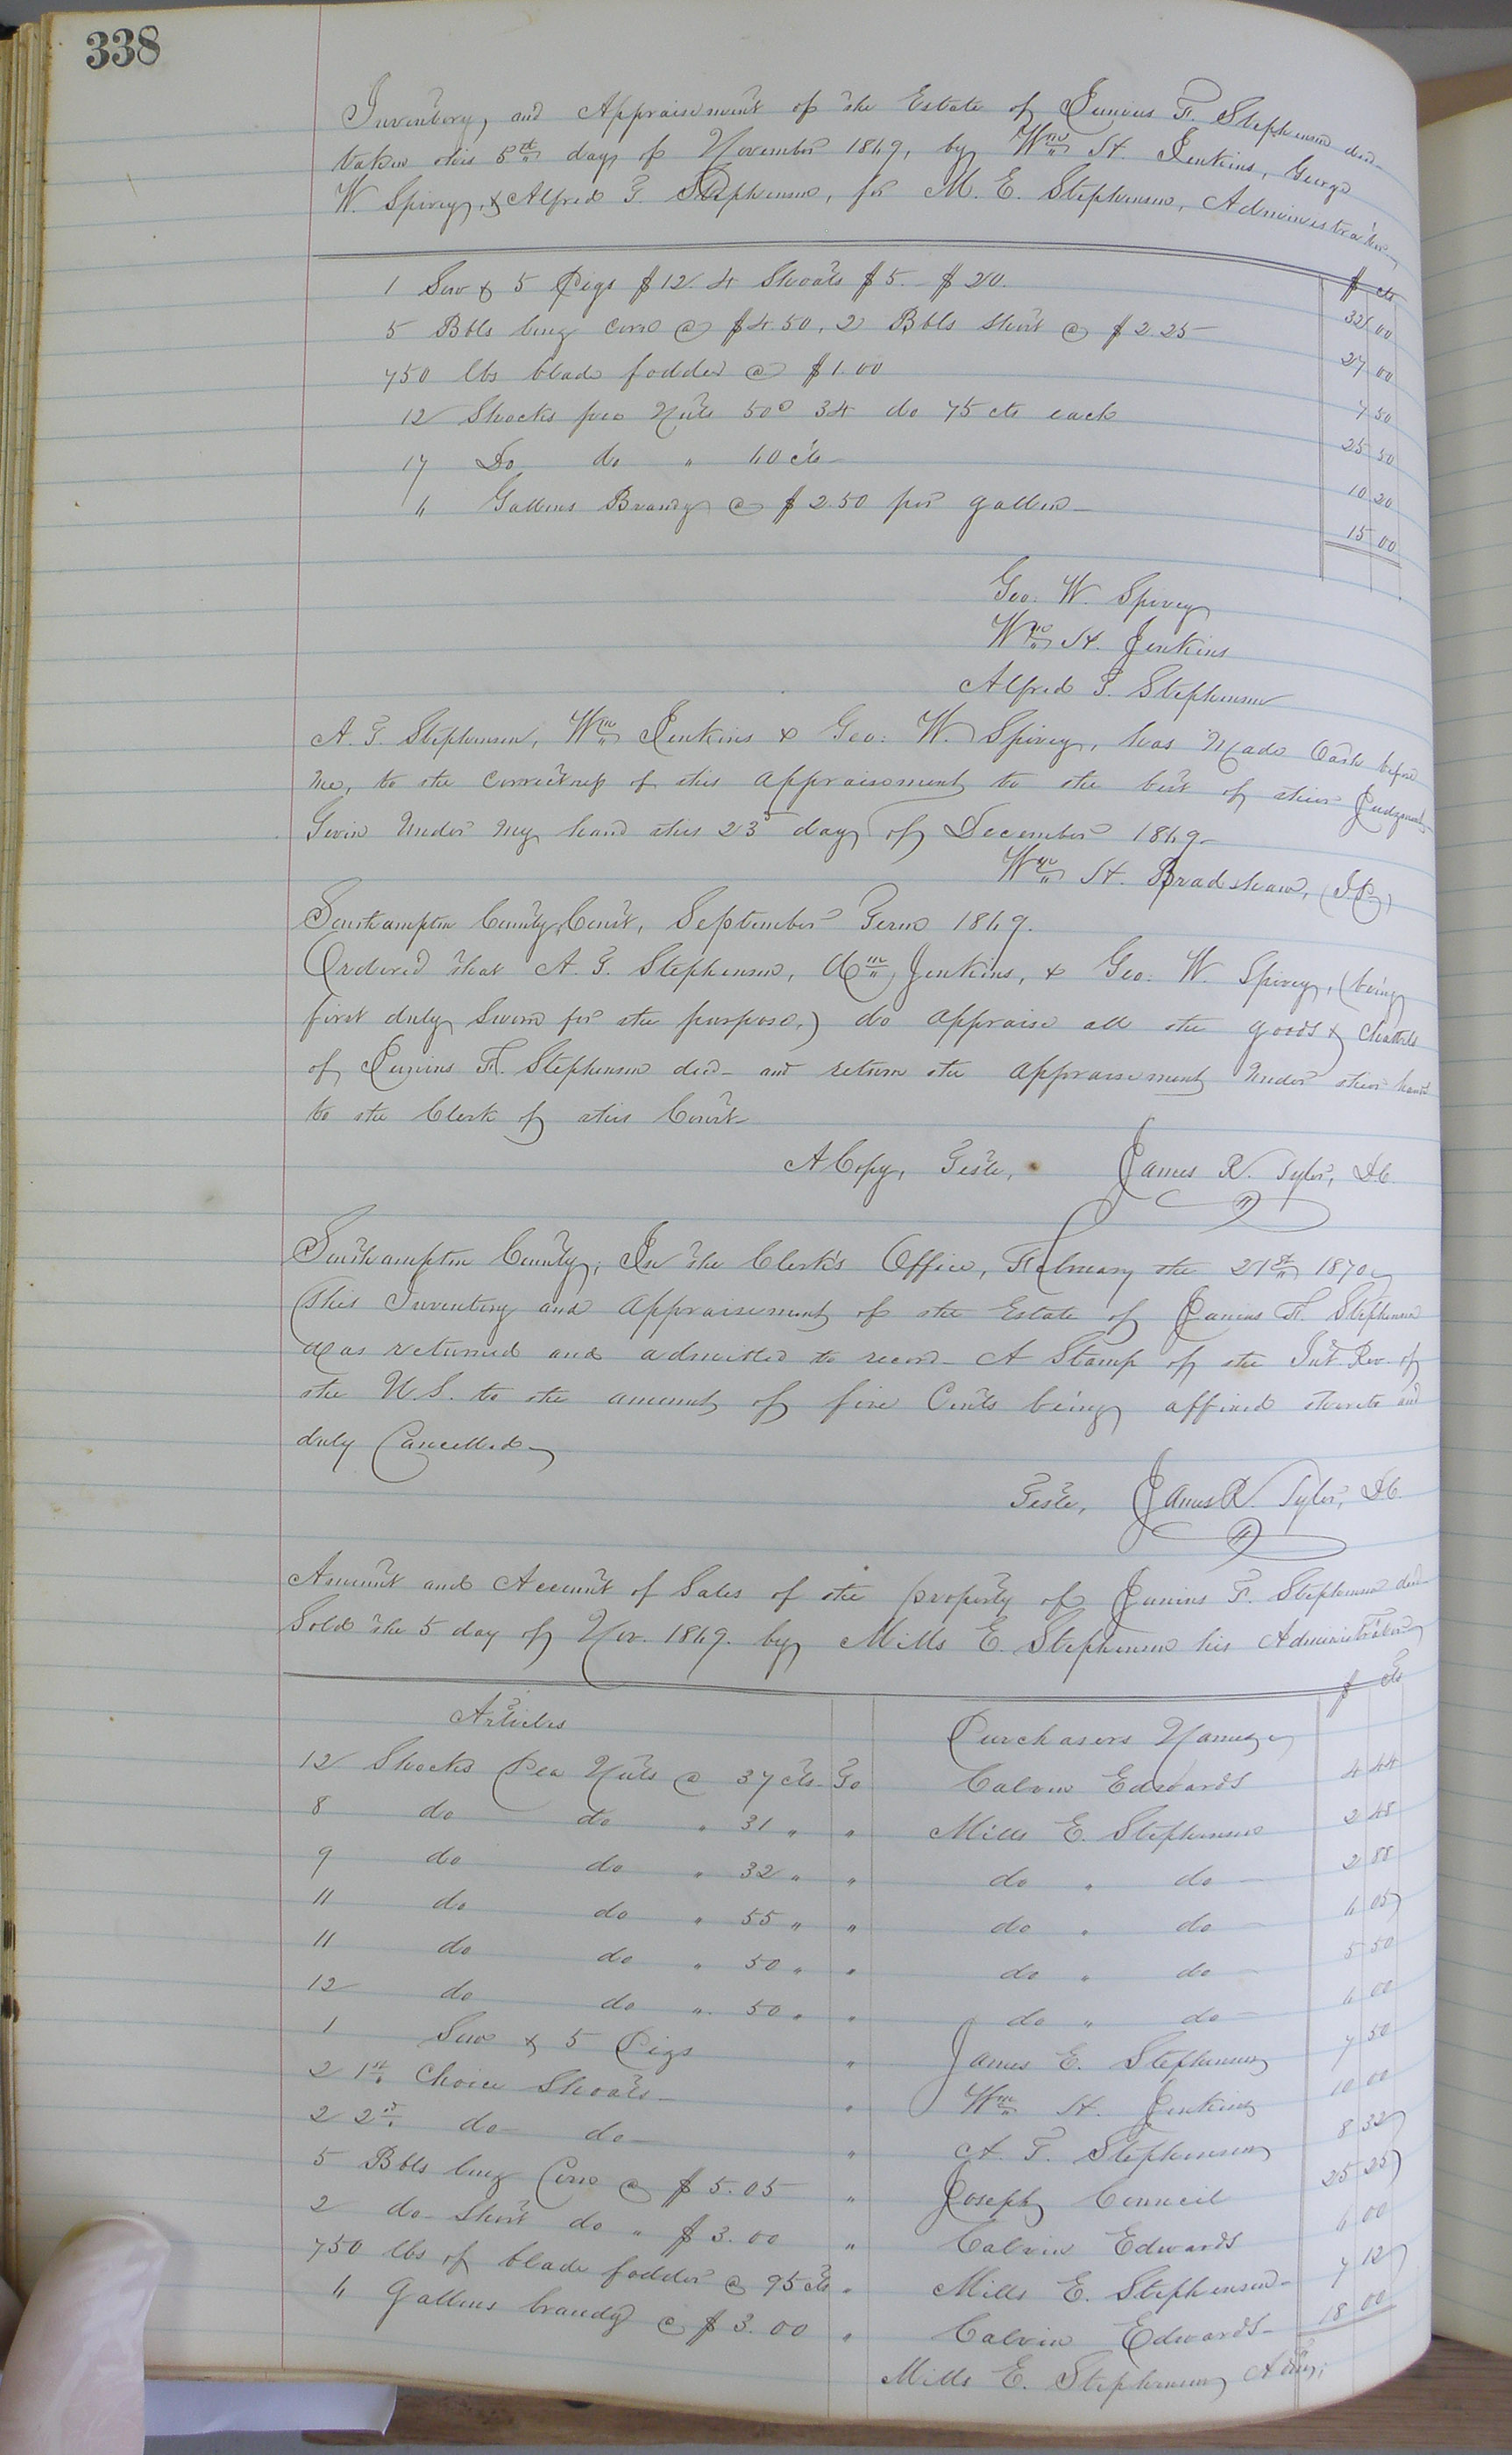 338
Inventory, and Appraisement of the Estate of Junius F. Stephenson decd
taken this 5th day of November 1869, by Wm H. Jenkins, George
W. Spivey, & Alfred T Stephenson, for M. E. Stephenson, Administrator
$ cts
1 Sow & 5 Pigs $12. 4 Shoats $5. $20. 32 00
5 Bbls long corn @ $4.50, 2 Bbls short @ $2.25 27 00
750 lbs blade fodder @ $1.00 7 50
12 Shocks pea Nuts 50c 34 do 75 cts each 25 50
17 Do do " 60 cts 10 20
6 Gallons Brandy @ $2.50 per gallon 15 00
Geo. W. Spivey
Wm H. Jenkins
Alfred T. Stephenson
A. T. Stephenson, Wm Jenkins & Geo. W. Spivey, has Made Oath before
Me, to the correctness of this appraisement to the best of their Judgment
Given Under My hand this 23d day of December 1869
Wm H. Bradshaw, (J.P.)
Southampton County Court, September Term 1869.
Ordered that A. T. Stephenson, Wm Jenkins, & Geo. W. Spivey, (being
first duly sworn for the purpose,) do appraise all the goods & Chattels
of Junius F. Stephenson decd and return the appraisement Under their hand
to the Clerk of this Court
A Copy, Teste, James R. Tyler, D.C.
Southampton County, In the Clerk's Office, February the 21st 1870
This Inventory and appraisement of the Estate of Junius F. Stephenson
was returned and admitted to record. A Stamp of the Int. Rev. of
the U.S. to the amount of five Cents being affixed thereto and
duly Cancelled
Teste, James R. Tyler, D.C.
Amount and Account of Sales of the property of Junius F. Stephenson decd
Sold the 5 day of Nov. 1869. by Mills E. Stephenson his Administrator
$ cts
Articles Purchasers Names
12 Shocks Pea Nuts @ 37 cts To Calvin Edwards 4 44
8 do do " 31 " " Mills E. Stephenson 2 48
9 do do " 32 " " do " do 2 88
11 do do " 55 " " do " do 6 05
11 do do " 50 " " do " do 5 50
12 do do " 50 " " do " do 6 00
1 Sow & 5 Pigs " James E. Stephenson 7 50
2 1st Choice Shoats " Wm H. Jenkins 10 00
2 2d do do " A. T. Stephenson 8 32
5 Bbls long Corn @ $5.05 " Joseph Council 25 25
2 do Short do " $3.00 " Calvin Edwards 6 00
750 lbs of blade fodder @ 95 cts " Mills E. Stephenson 7 12
6 Gallons brandy @ $3.00 " Calvin Edwards 18 00
Mills E. Stephenson Admr.